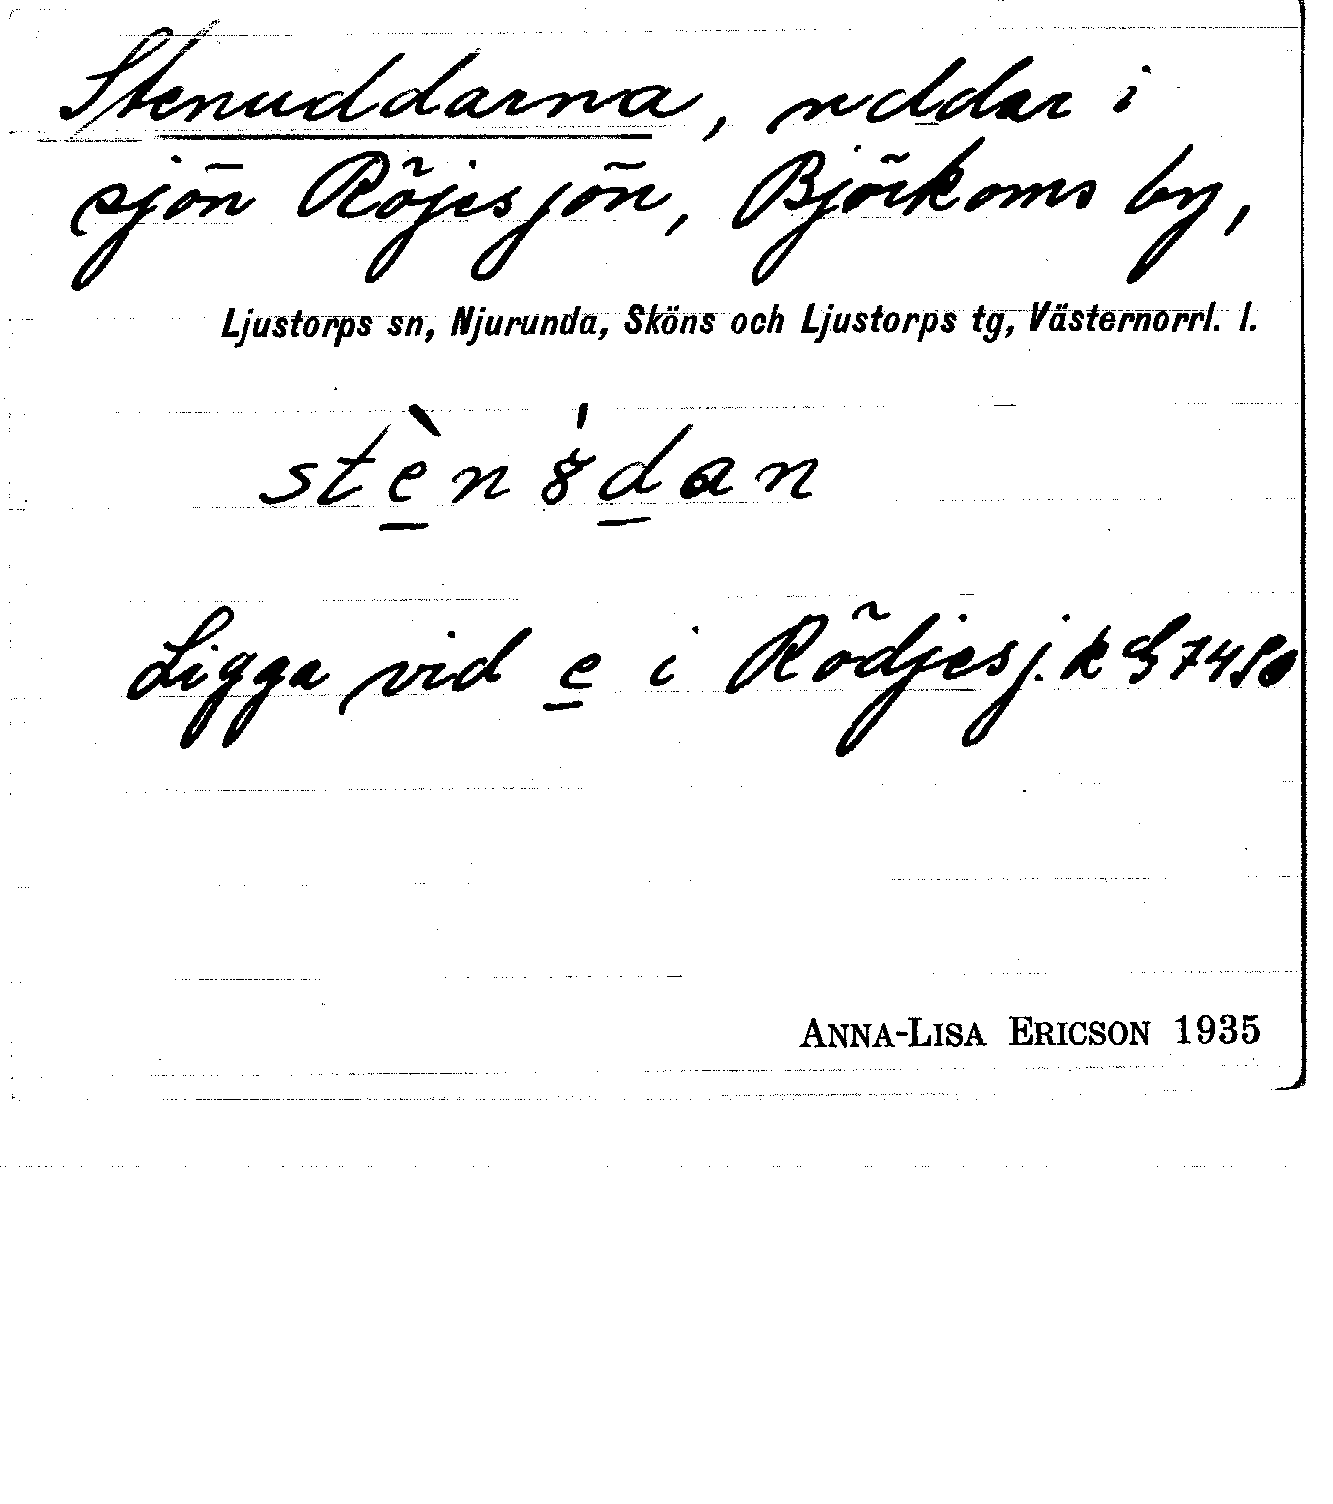 Stenuddarna, uddar i
sjön Röjesjön, Björkoms by,
Ljustorps sn, Njurunda, Sköns och Ljustorps tg, Västernorrl. l.
stèn ȣ́dan
Ligga vid e i Rödjesj. k
ANNA-LISA ERICSON 1935